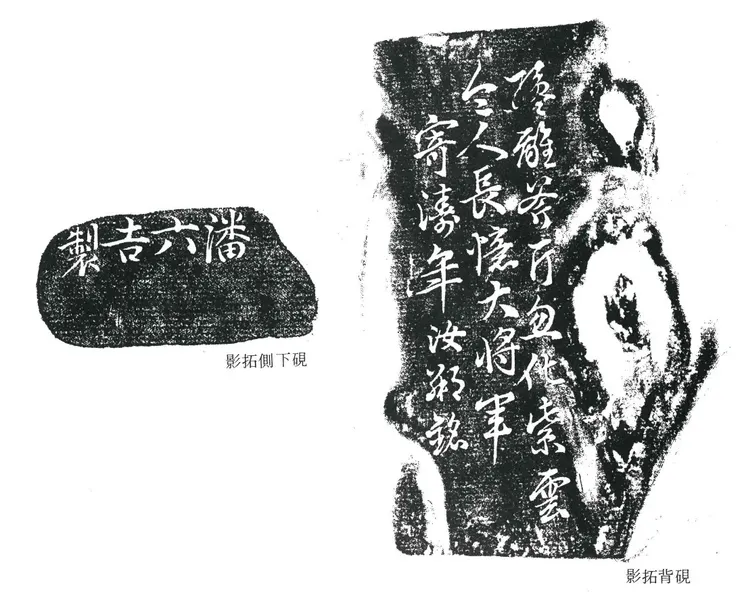 離斧斤忽化紫雲
令人長憶大將軍
寄濤年汝銘
硯背拓影
潘六吉製
硯下側拓影